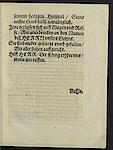 seinem heiligen Himmel / Seine
rechte Hand hilfft gewaltiglich.
Jene verlassen sich auff Wagen vnd Ros-
se / Wir aber dencken an den Namen
des HERRN vnsers Gottes.
Sie sind nider gestürtzt vnnd gefallen /
Wir aber stehen auffgericht.
Hilff HERR / Der König erhöre vns /
wenn wir ruffen.